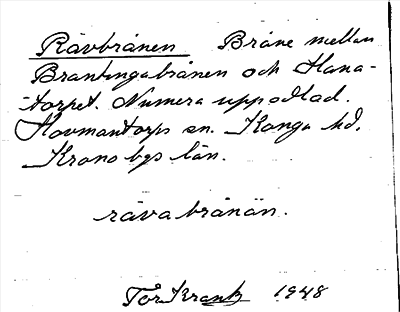 Rävbrånen Bråne mellan
Brantingabrånen och Hana-
torpet. Numera uppodlad.
Hovmantorps sn. Konga hd.
Kronobgs län.
rävabrånän.
Tor Krank 1948